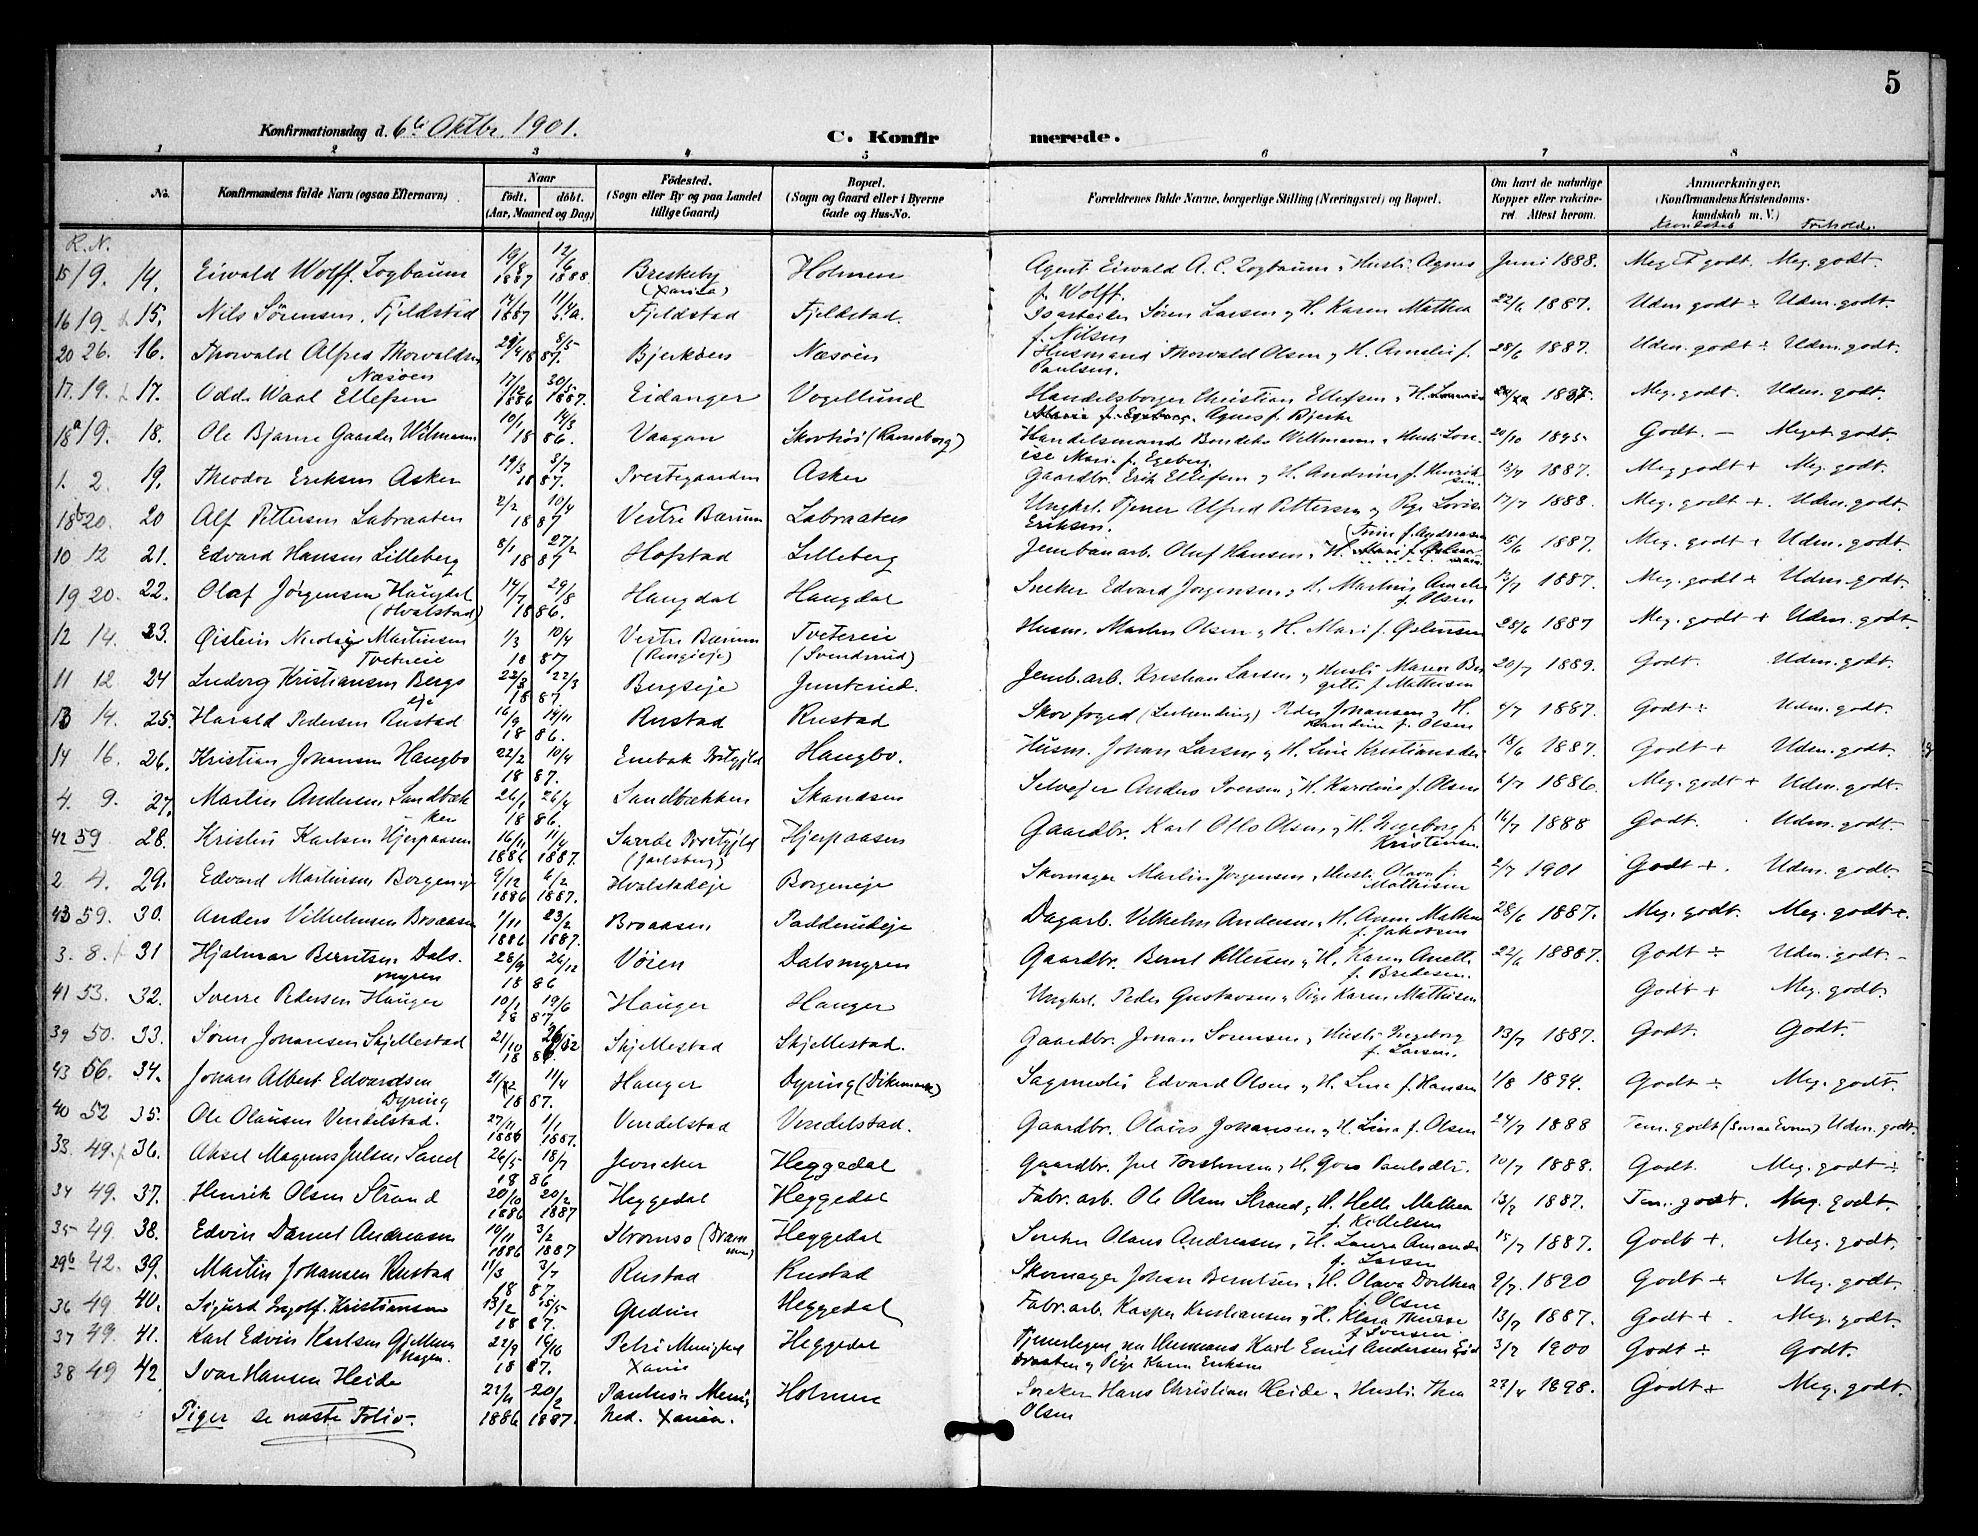 5
Konfirmationsdag d. 6te Oktbr. 1901.
C. Konfirmerede.
1 2 3 4 5 6 7 8
No. Konfirmandens fulde Navn (ogsaa Efternavn) Naar født. døbt. (Aar, Maaned og Dag) Fødested. (Sogn eller By og paa Landet tillige Gaard) Bopæl. (Sogn og Gaard eller i Byerne Gade og Hus-No. Forældrenes fulde Navne, borgerlige Stilling (Næringsvei) og Bopæl. Om havt de naturlige Kopper eller vaccineret Attest herom. Anmærkninger. (Konfirmandens Kristendomskundskab m. V.)
Kundskab Forhold.
R. N.
15 19. 14. Eiwald Wolff Zogbaum 1887 1888. Briskeby (Xania) Holmen Agent Eiwald A. C. Zogbaum, Hustr. Agnes f. Wolff. Juni 1888. Meget godt. Meg. godt.
16 19. 15. Nils Sørensen, Fjeldstad 1887 Fjeldstad Fjeldstad. Isarbeider Søren Larsen og H. Karen Mathea f. Nilsen 22/6 1887. Udm. godt ÷ Udm. godt.
20 26. 16. Thorvald Alfred Thorvaldsen Næsøen 8/5 1887. Bjerkøen Næsøen Husmand Thorvald Olsen og H. Amelie f. Paulsen. 28/6 1887. Udm. godt ÷ Udm. godt.
17. 19. 17. Odd Waal Ellefsen 17/12 1886 30/5 1887. Eidanger Vogellund Handelsborger Christian Ellefsen, H. Agnes f. Bjerke 1887 Meg. godt. Udm. godt.
18a 19. 18. Ole Bjarne Gaarder Wilmann 10/1 14/3 1886. Vaagan Skovhøi (Ravneborg) Handelsmand Wettmann, Hustr. Louise Marie f. Egeberg. 20/10 1895 Godt. – Meget godt.
1. 2. 19. Theodor Eriksen Asker 19/3 3/7 1887. Prestegaarden Asker Gaardbr. Erik Ellefsen og H. Andrine f. Henriksen. 13/7 1887. Meg godt + Meg. godt.
18b 20. 20 Alf Pettersen Labraaten 2/2 10/4 1887 Vestre Bærum Labraaten Ungkrl. Tjener Alfred Pettersen og Pige Lovise Eriksen. 17/7 1888. Meg. godt + Udm. godt.
10 12 21. Edvard Hansen Lilleberg 8/1 27/2 1887 Hofstad Lilleberg Jernbanarb. Oluf Hansen, H. Trine f. Andreasen 15/6 1887. Meg. godt + Udm. godt.
19 20. 22. Olaf Jørgensen Haugdal (Hvalstad) 14/7 29/8 1886. Haugdal Haugdal Sneker Edvard Jørgensen, H. Martine Amelie f. Olsen 13/7 1887. Meg. godt + Udm. godt.
12 14. 23. Øistein Nicolay Martinsen Tveterie 1/3 10/4 1887 Vestre Bærum (Ringieje) Tveterie (Svendsrud) Husm. Martin Olsen og H. Mari f. 28/6 1887 Meg. godt + Udm. godt.
11 12 24 Ludvig Kristiansen Bergseje 22/3 1887. Bergseje Jern.arb. Kristian Larsen og Hustr. Maren Birgitte f. Mathisen 20/7 1889. Godt. Udm. godt.
13 14. 25. Harald Pedersen Rustad 16/9 14/11 1886. Rustad Rustad Skovfoged Peder Johansen og H. Randine f. Olsen 4/7 1887. Godt ÷ Udm. godt.
14 16. 26. Kristian Johansen Haugbo 22/2 10/4 1887. Enebak Prstgjld Haugbo. Husm. Johan Larsen og H. Line Kristiansdr. 18/6 1887. Godt + Udm. godt.
4. 9. 27. Martin Andersen Sandbækken 26/1 26/4 1886. Sandbækken Skandsen Selvejer Anders Iversen, H. Karoline f. Olsen 6/7 1886. Meg. godt + Udm. godt.
42 59 28. Kristen Karlsen Hjerpaasen 16/11 1886 11/4 1887. Sande Prstgjld (Jarlsberg) Hjerpaasen Gaardbr. Karl Otto Olsen, H. Ingeborg f. Kristensen 16/7 1888 Godt. Udm. godt.
2 4. 29. Edvard Martinsen Borgeneje 9/12 1886 6/2 1887. Hvalstadeje Borgeneje Skomager Martin Jørgensen, Hustr. Olava f. Mathisen 2/7 1901 Godt +. Udm. godt.
43 59. 30. Anders Vilhelmsen Braaasen 1/11 1886 23/2 1887. Braaasen Padderudeje Dagarb. Vilhelm Andersen, H. Anne Mathea f. Jakobsen 28/6 1887. Meg. godt. Meg. godt.
3. 8. 31 Hjalmar Berntsen Dalsmyren 28/9 26/12 1886 Vøien Dalsmyren Gaardbr. Bernt Pettersen og H. Karen Anette f. Bredesen. 22/6 1887. Godt ÷ Udm. godt. –
41 53. 32. Sverre Pedersen Hauger 10/1 19/6 1887. Hauger Hauger Ungkrl. Peder Gustavsen og Pige Karen Mathisen Godt + Meg. godt.
39 50. 33. Søren Johansen Skjellestad 21/10 1886. Skjellestad Skjellestad. Gaardbr. Johan Sørensen, Hustr. Ingeborg f. Larsen. 13/7 1887. Godt. Godt.
43 56. 34. Johan Albert Edvardsen Dyring 11/4 1887. Hauger Dyring (Dikemark) Sagmester Edvard Olsen og H. Lina f. Hansen 1/8 1894. Godt ÷ Meg. godt.
40 52 35. Ole Olausen Vendelstad. 27/11 1886 1/1 1887. Vendelstad Vendelstad. Gaardbr. Olaus Johansen og H. Lina f. Olsen 24/7 1888 Tem. godt (Smaa Evner) Udm. godt.
33. 49. 36. Aksel Magnus Julsen Sand 26/5 18/7 1886 Heggedal Gaardbr. Jul Torstensen, H. Paulsdtr. 20/7 1888. Godt. Meg. godt ÷
34 49. 37. Henrik Olsen Strand 20/10 1886 20/2 1887 Heggedal Heggedal Fabr. arb. Ole Olsen Strand, H. Helle Mathea f. Kittelsen 13/7 1887. Tem. godt. Meg. godt.
35 49 38. Edvin Daniel Andreasen 10/11 1886 3/2 1887 Strømsø (Drammen) Heggedal Sneker Olaus Andreasen, H. Laura Amanda f. Larsen 15/7 1887. Godt +. Meg. godt.
29b 42. 39. Martin Johansen Rustad 11/3 3/7 1887. Rustad Rustad Skomager Johan Berntsen, H. Olava Dorthea f. Olsen 9/7 1890 Godt + Meg. godt.
36 49. 40. Sigurd Ingolf Kristiansen 13/2 15/5 1887. Heggedal Fabr. arb. Kasper Kristiansen, H. Klara Therese f. Iversen 13/7 1887. Godt + Meg. godt.
37 49. 41. Karl Edvin Karlsen Gjellum hagen. 22/8 16/10 1887. Petri Menighed Xania Heggedal Karl Emil Andersen og Pige Karen Eriksen 3/7 1900 Godt ÷ Godt.
38 49 42 Ivar Hansen Heide 22/11 1886 20/2 1887. Paulus Menighed. Xania. Holmen Sneker Hans Christian Heide, Hustr. Thea Olsen 22/4 1898. Godt + Meg. godt.
Piger se næste Folio.